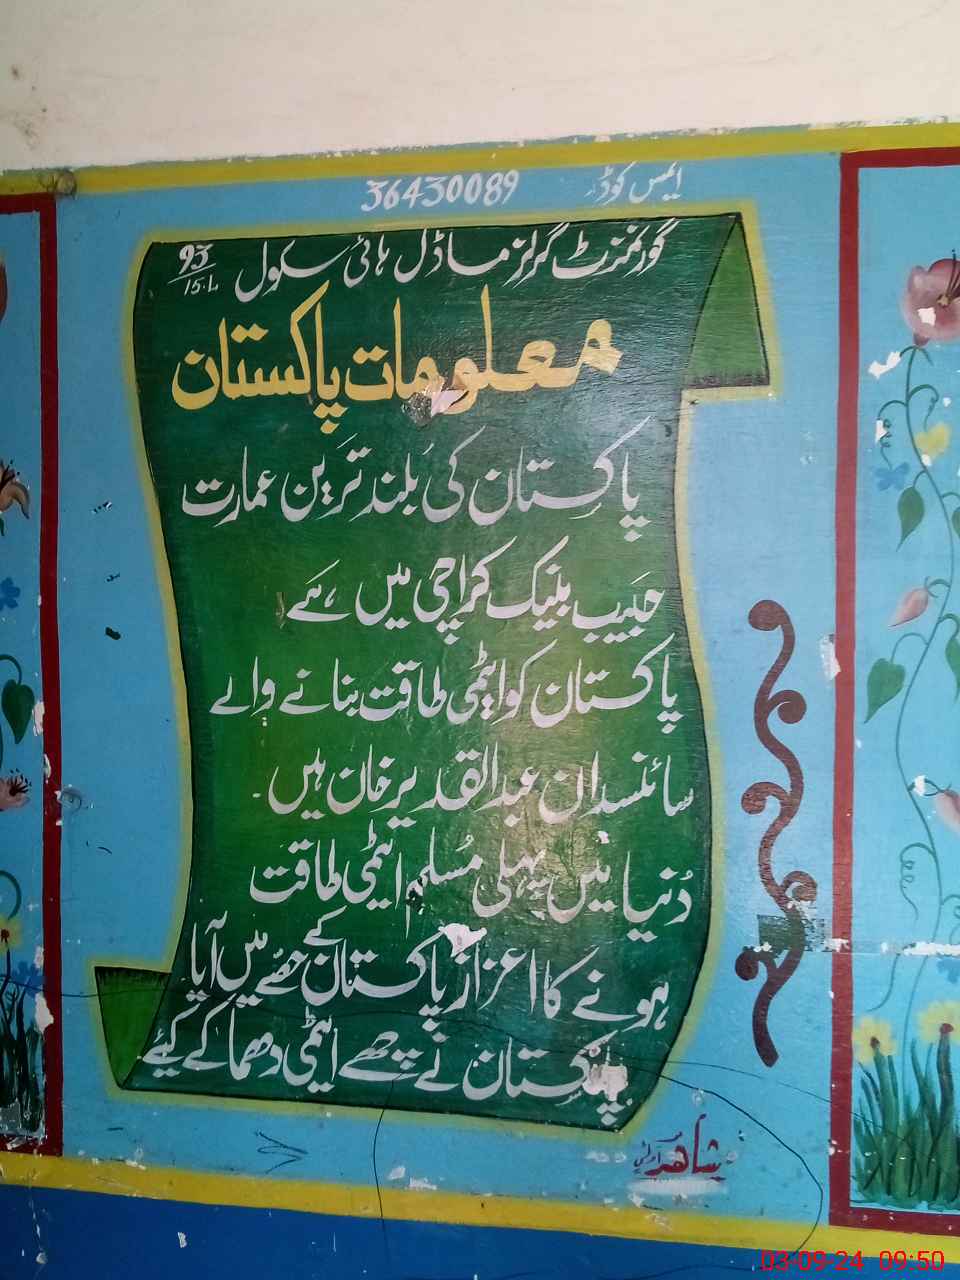 ایمس کوڈ 36430089
گورنمنٹ گرلز ماڈل ہائی سکول 93/15.L
معلومات پاکستان
پاکستان کی بُلند ترین عمارت
حبیب بینک کراچی میں ہے
پاکستان کو ایٹمی طاقت بنانے والے
سائنسدان عبدالقدیر خان ہیں۔
دُنیا میں پہلی مُسلم ایٹمی طاقت
ہونے کا اعزاز پاکستان کے حصّے میں آیا
پاکستان نے چھے ایٹمی دھماکے کیئے
شاھد
03-09-24 09:50